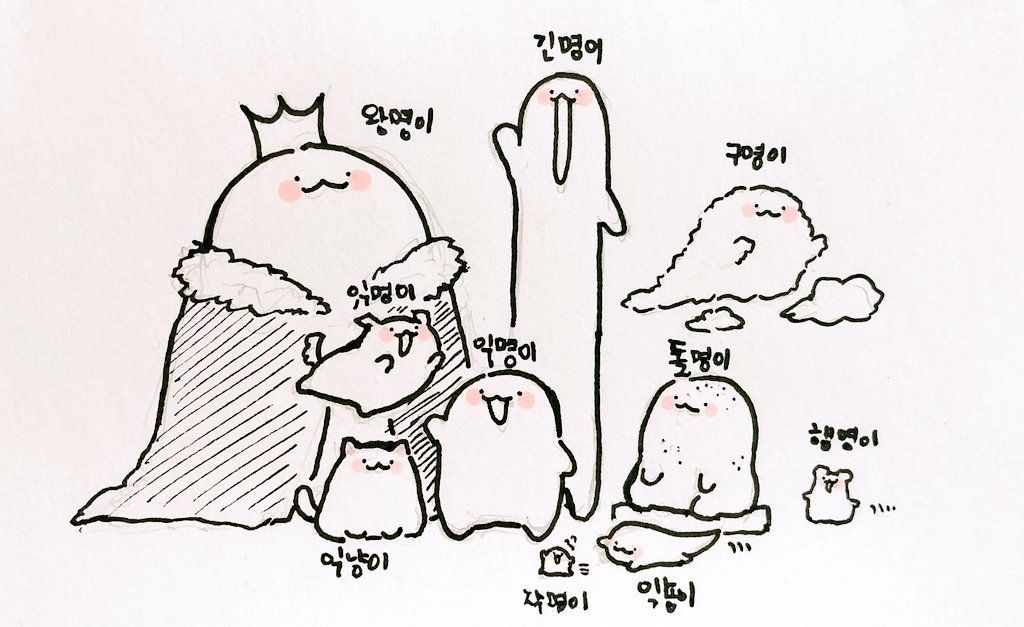 긴명이
왕명이
구명이
익명이
돌명이
햄명이
익냥이
작명이